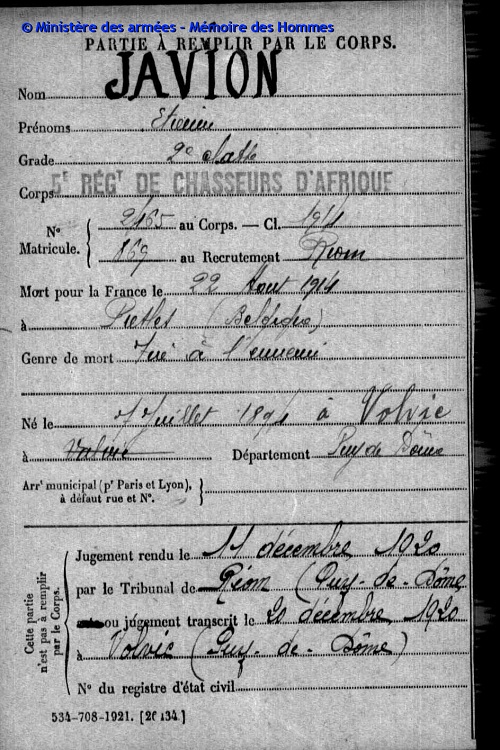 © Ministère des armées - Mémoire des Hommes
PARTIE À REMPLIR PAR LE CORPS.
Nom JAVION
Prénoms Etienne
Grade 2e classe
Corps 5E RÉGT DE CHASSEURS D'AFRIQUE
No Matricule. { 2465 au Corps. — Cl. 1914
869 au Recrutement Riom
Mort pour la France le 22 Aout 1914
à (Belgique)
Genre de mort Tué à l'ennemi
Né le 7 Juillet 1894 à Volvic
à Volvic Département Puy de Dôme
Arrt municipal (pr Paris et Lyon),
à défaut rue et No.
Cette partie
n'est pas à remplir
par le Corps.
Jugement rendu le 11 décembre 1920
par le Tribunal de Riom (Puy-de-Dôme
ou jugement transcrit le 20 décembre 1920
à Volvic (Puy-de-Dôme)
No du registre d'état civil
534-708-1921. [26434.]